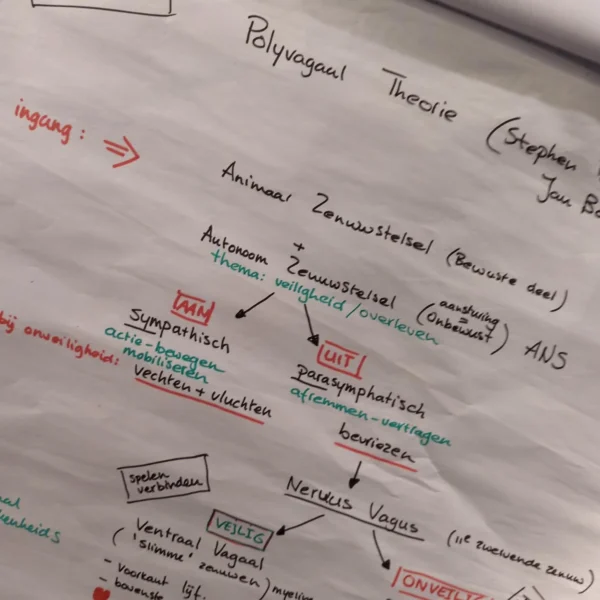 Polyvagaal Theorie (Stephen
Jan
ingang: ⇒
Animaal Zenuwstelsel (Bewuste deel)
+
Autonoom Zenuwstelsel (aansturing = Onbewust) ANS
thema: veiligheid/overleven
AAN
Sympathisch
actie-bewegen
mobiliseren
bij onveiligheid:
vechten + vluchten
UIT
parasymphatisch
afremmen-vertragen
bevriezen
Nervus Vagus
zwervende zenuw)
spelen
verbinden
VEILIG
Ventraal Vagaal
('slimme' zenuwen)
- voorkant lijf.
ONVEILIG